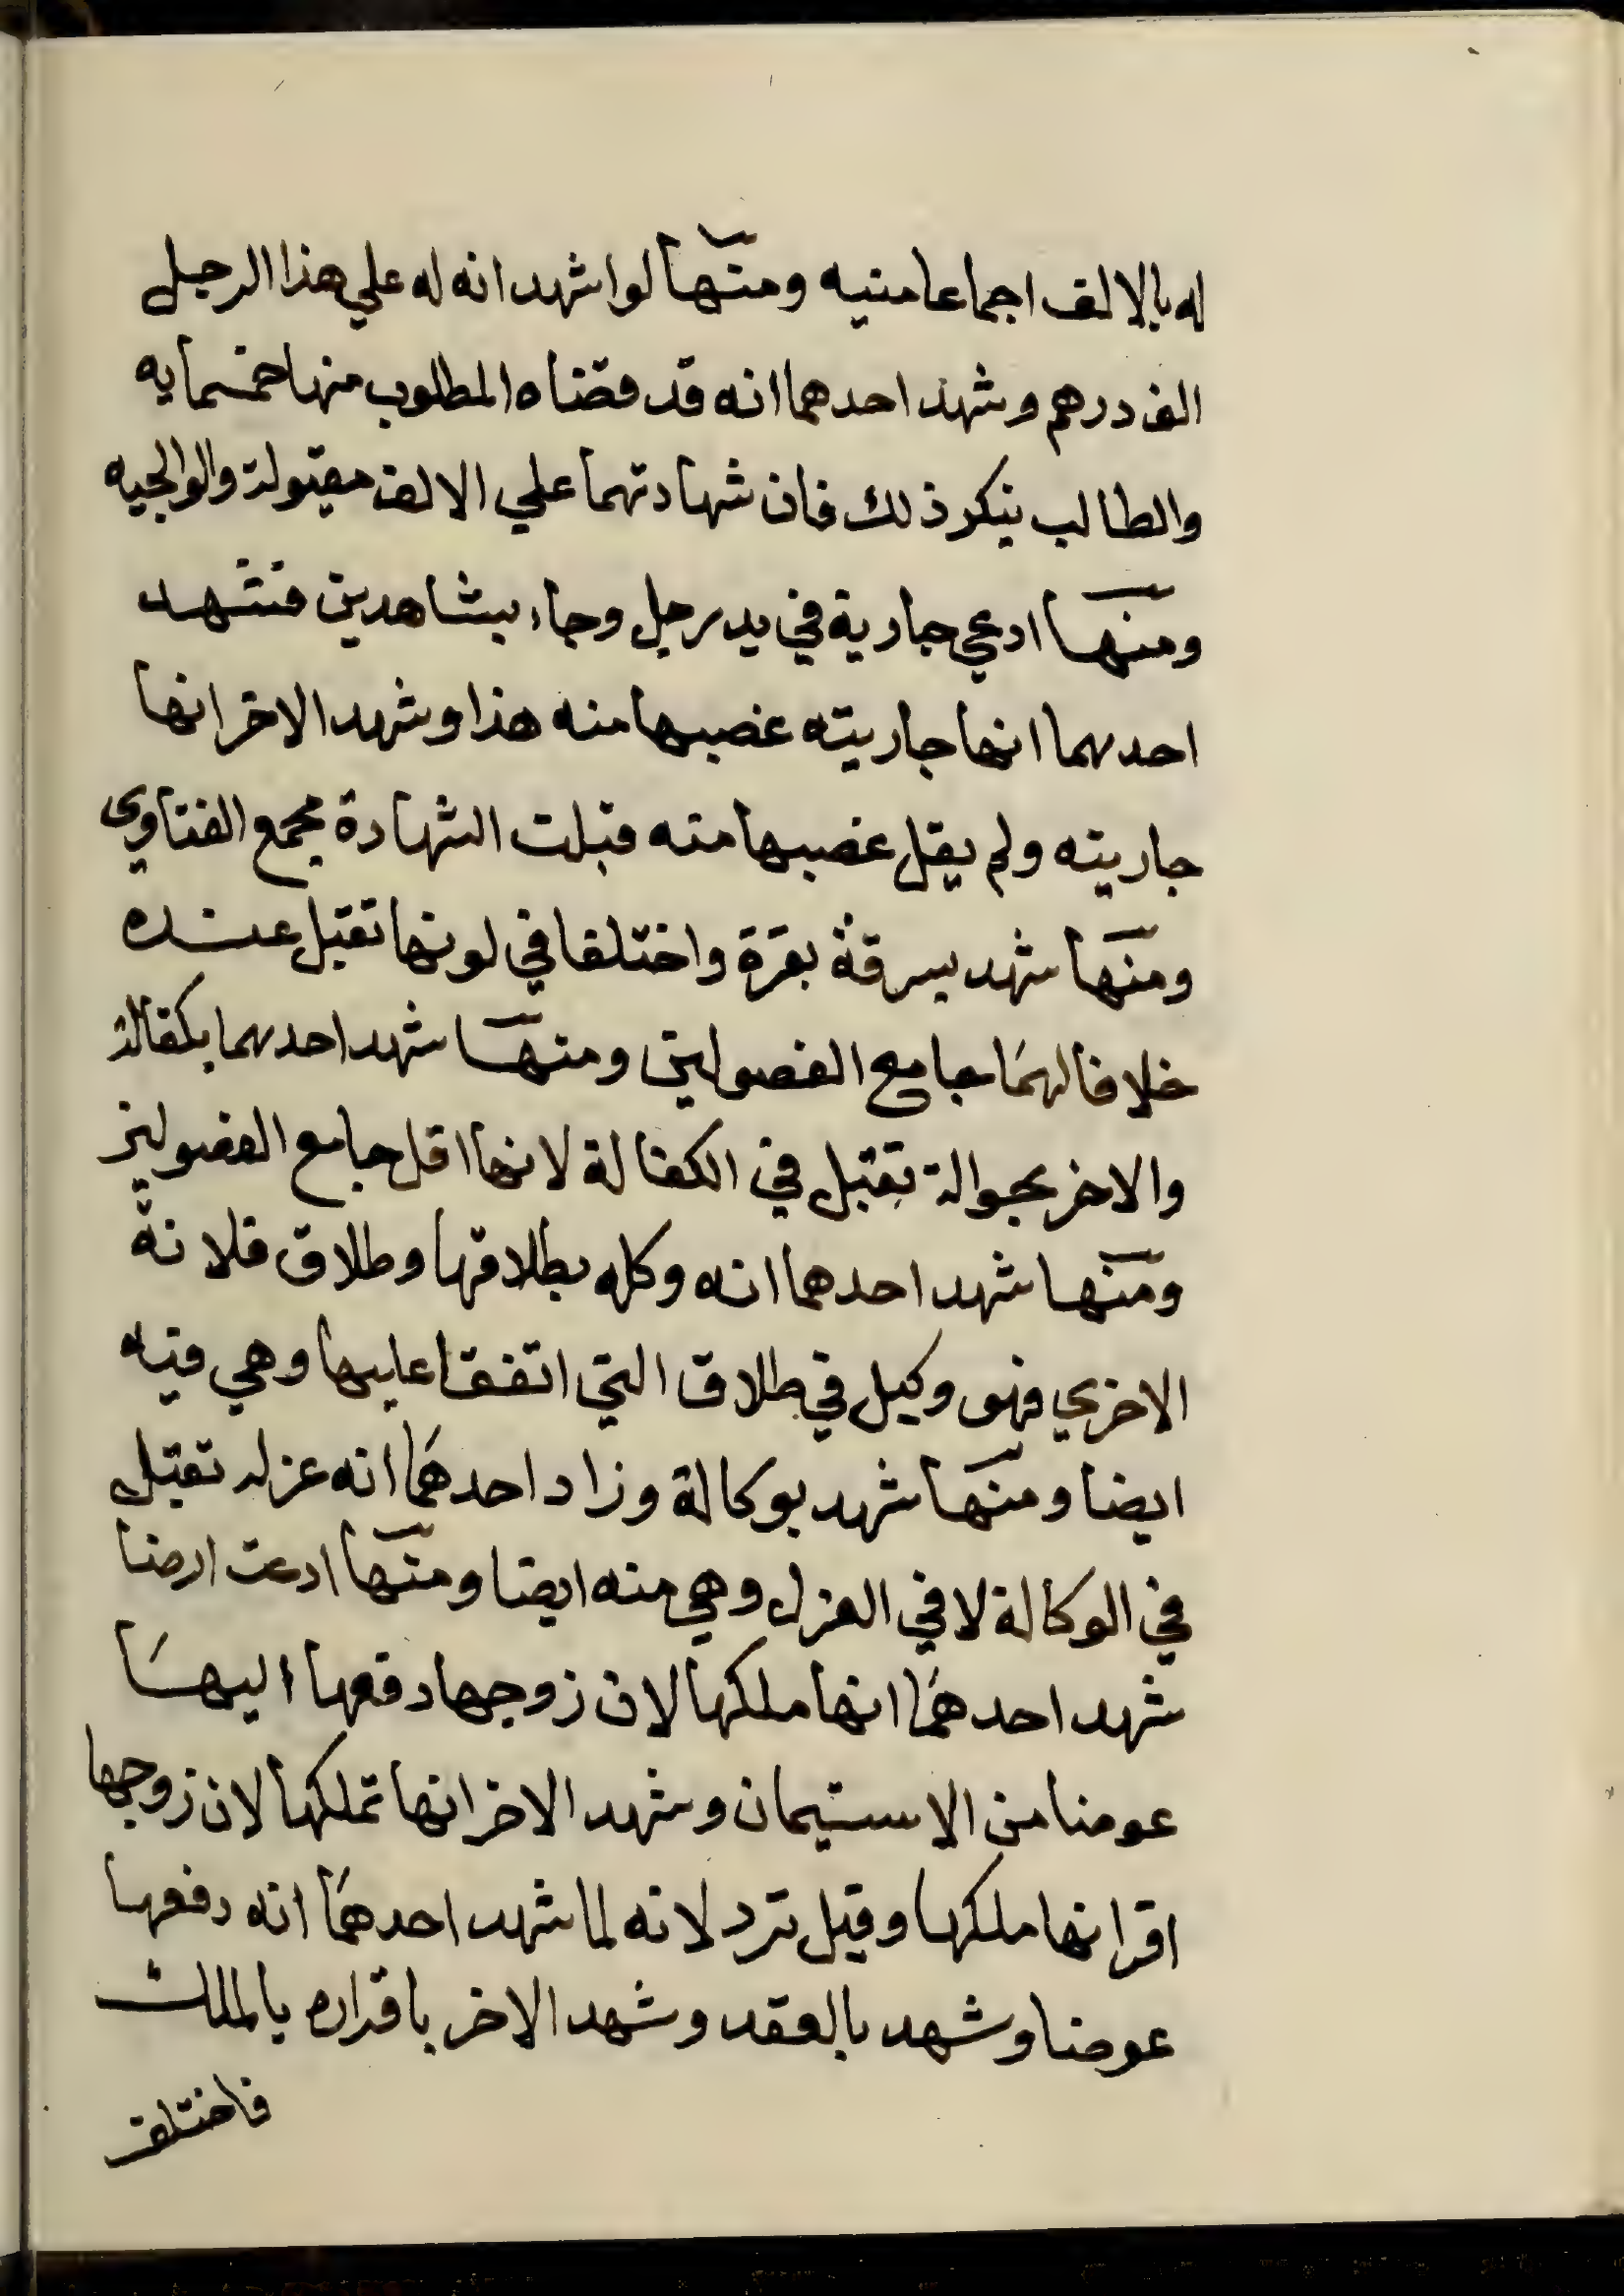 له بالالف اجماعا منيه ومنها لو اشهد انه له علي هذا الرجل
الف درهم وشهد احدهما انه قد قضاه المطلوب منها خمسمايه
والطالب ينكر ذلك فان شهادتهما علي الالف مقبولة والوالجيه
ومنها ادعي جارية في يد رجل وجاء بشاهدين فشهد
احدهما انها جاريته غصبها منه هذا وشهد الاخر انها
جاريته ولم يقل غصبها منه قبلت الشهادة مجمع الفتاوى
ومنها شهد بسرقة بقرة واختلفا في لونها تقبل عنده
خلافا لهما جامع الفصولين ومنها شهد احدهما بكفالة
والاخر بحوالة تقبل في الكفالة لانها اقل جامع الفصولين
ومنها شهد احدهما انه وكله بطلاقها وطلاق فلانة
الاخري فهو وكيل في طلاق التي اتفقا عليها وهي فيه
ايضا ومنها شهد بوكالة وزاد احدهما انه عزله تقبل
في الوكالة لا في العزل وهي منه ايضا ومنها ادعت ارضا
شهد احدهما انها ملكها لان زوجها دفعها اليها
عوضا من الاستيمان وشهد الاخر انها تملكها لان زوجها
اقر انها ملكها وقيل ترد لانه لما شهد احدهما انه دفعها
عوضا وشهد بالعقد وشهد الاخر باقراره بالملك
فاختلف